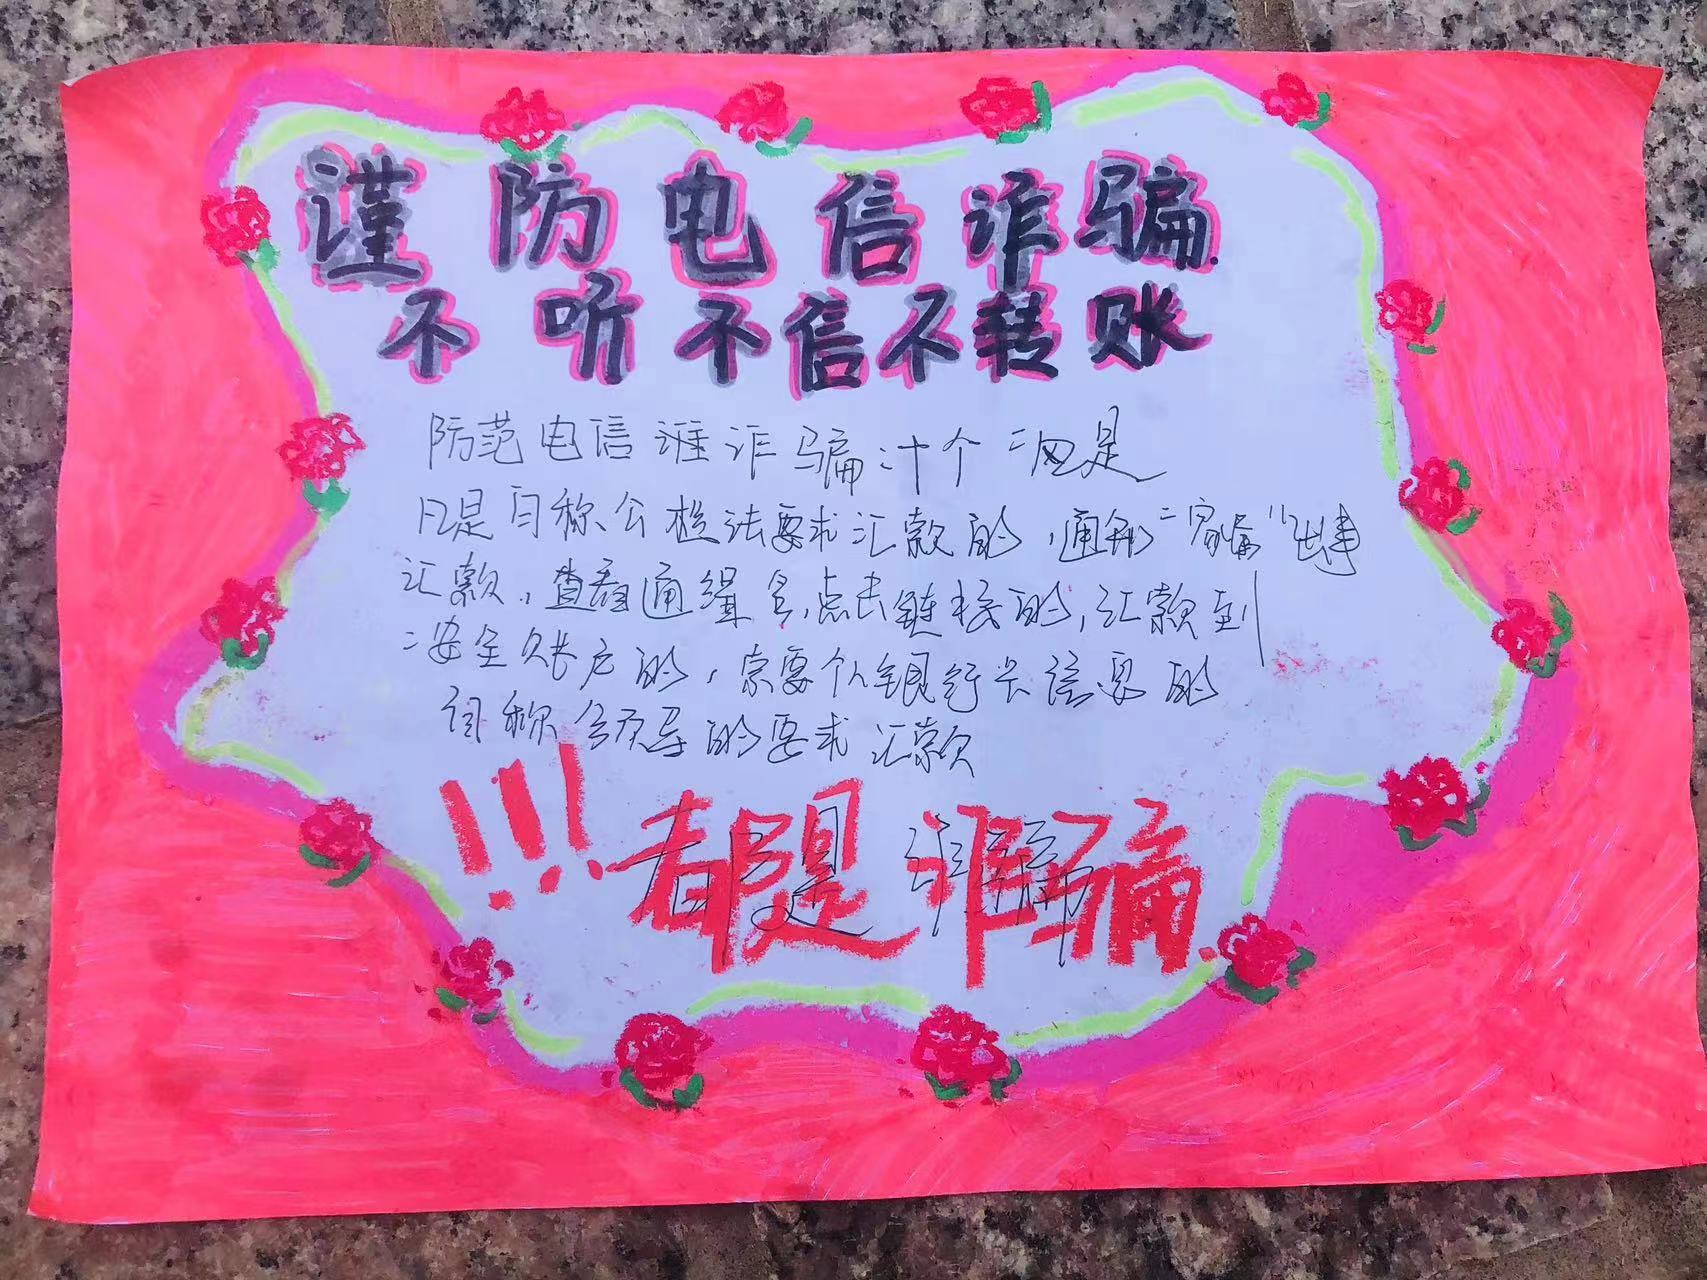 谨防电信诈骗
不听不信不转账
防范电信诈骗:十个"凡是
凡是自称公检法要求汇款的,通知"家属"出事
汇款,查看通缉令,点击链接的,汇款到
"安全账户的,索要个人银行卡信息的
自称领导的要求汇款
!!!都是诈骗